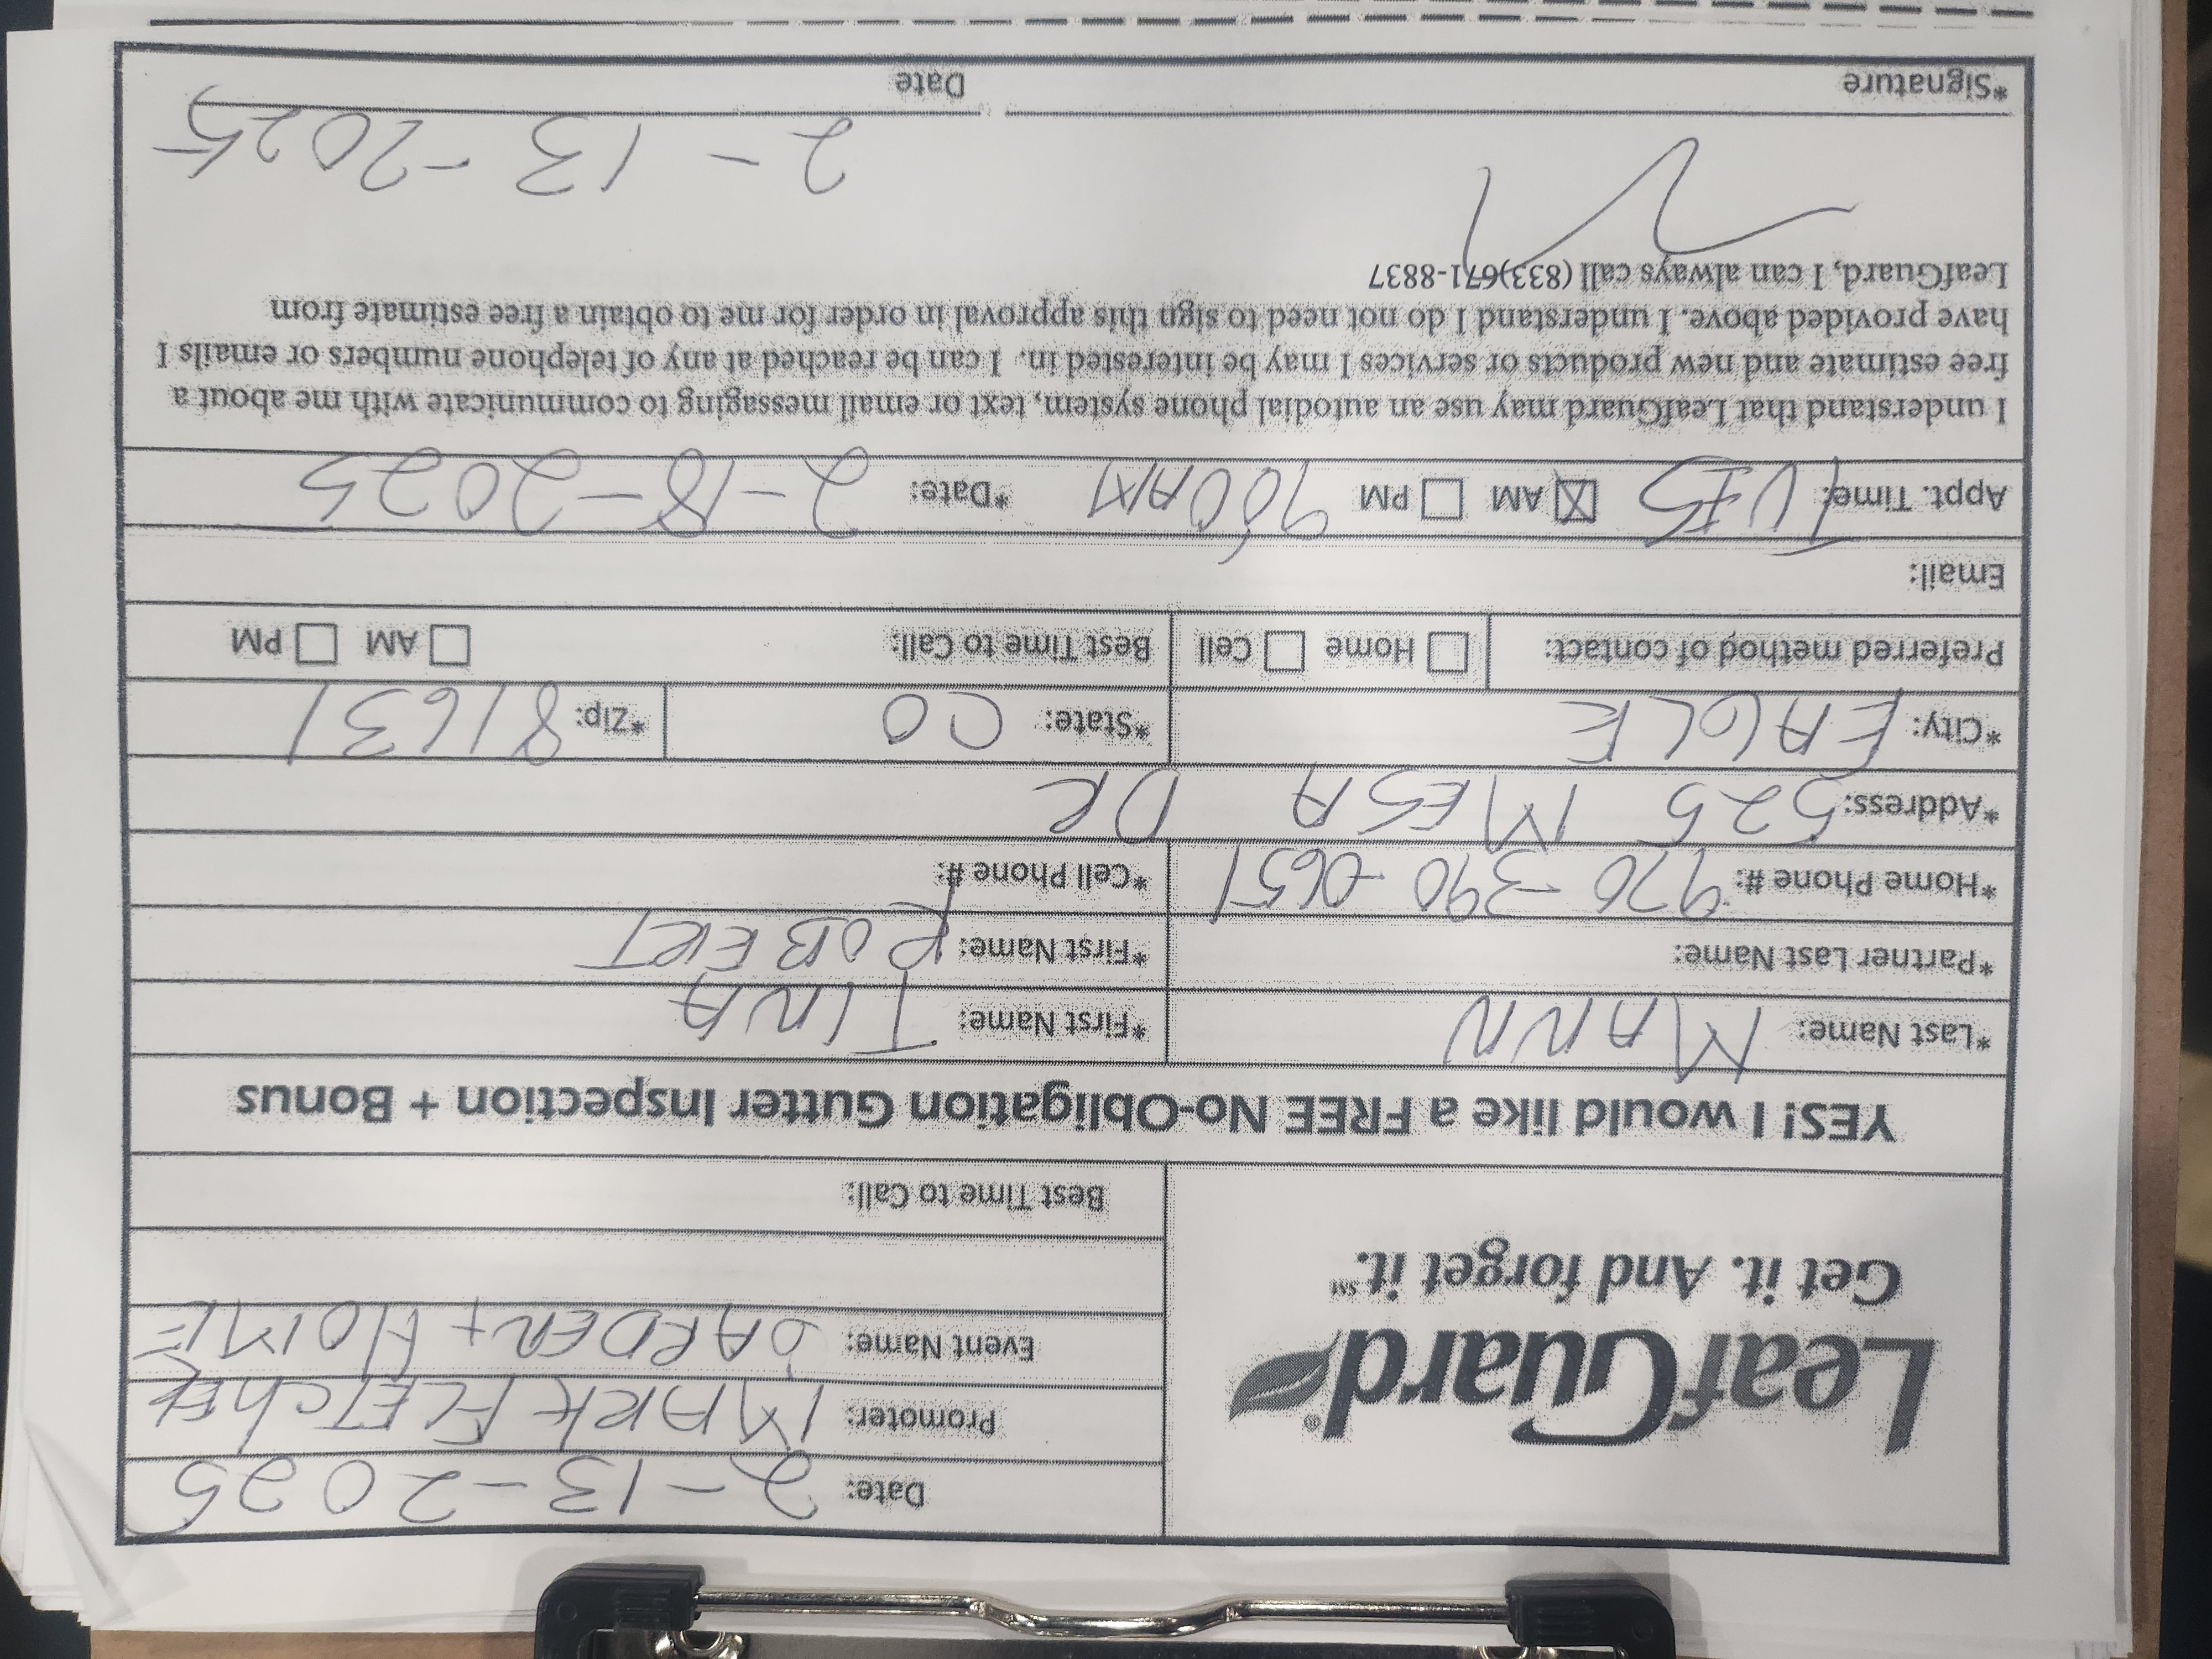 LeafGuard®
Get it. And forget it.℠
Date: 2-13-2025
Promoter: MARK FLETCHER
Event Name: GARDEN + HOME
Best Time to Call:
YES! I would like a FREE No-Obligation Gutter Inspection + Bonus
*Last Name: MANN *First Name: TINA
*Partner Last Name: *First Name: ROBERT
*Home Phone #: 970-390-0651 *Cell Phone #:
*Address: 525 MESA DR
*City: EAGLE *State: CO *Zip: 81631
Preferred method of contact: Home Cell Best Time to Call: AM PM
Email:
Appt. Time: TUES AM PM 900AM *Date: 2-18-2025
I understand that LeafGuard may use an autodial phone system, text or email messaging to communicate with me about a
free estimate and new products or services I may be interested in. I can be reached at any of telephone numbers or emails I
have provided above. I understand I do not need to sign this approval in order for me to obtain a free estimate from
LeafGuard, I can always call (833)671-8837
2-13-2025
*Signature Date